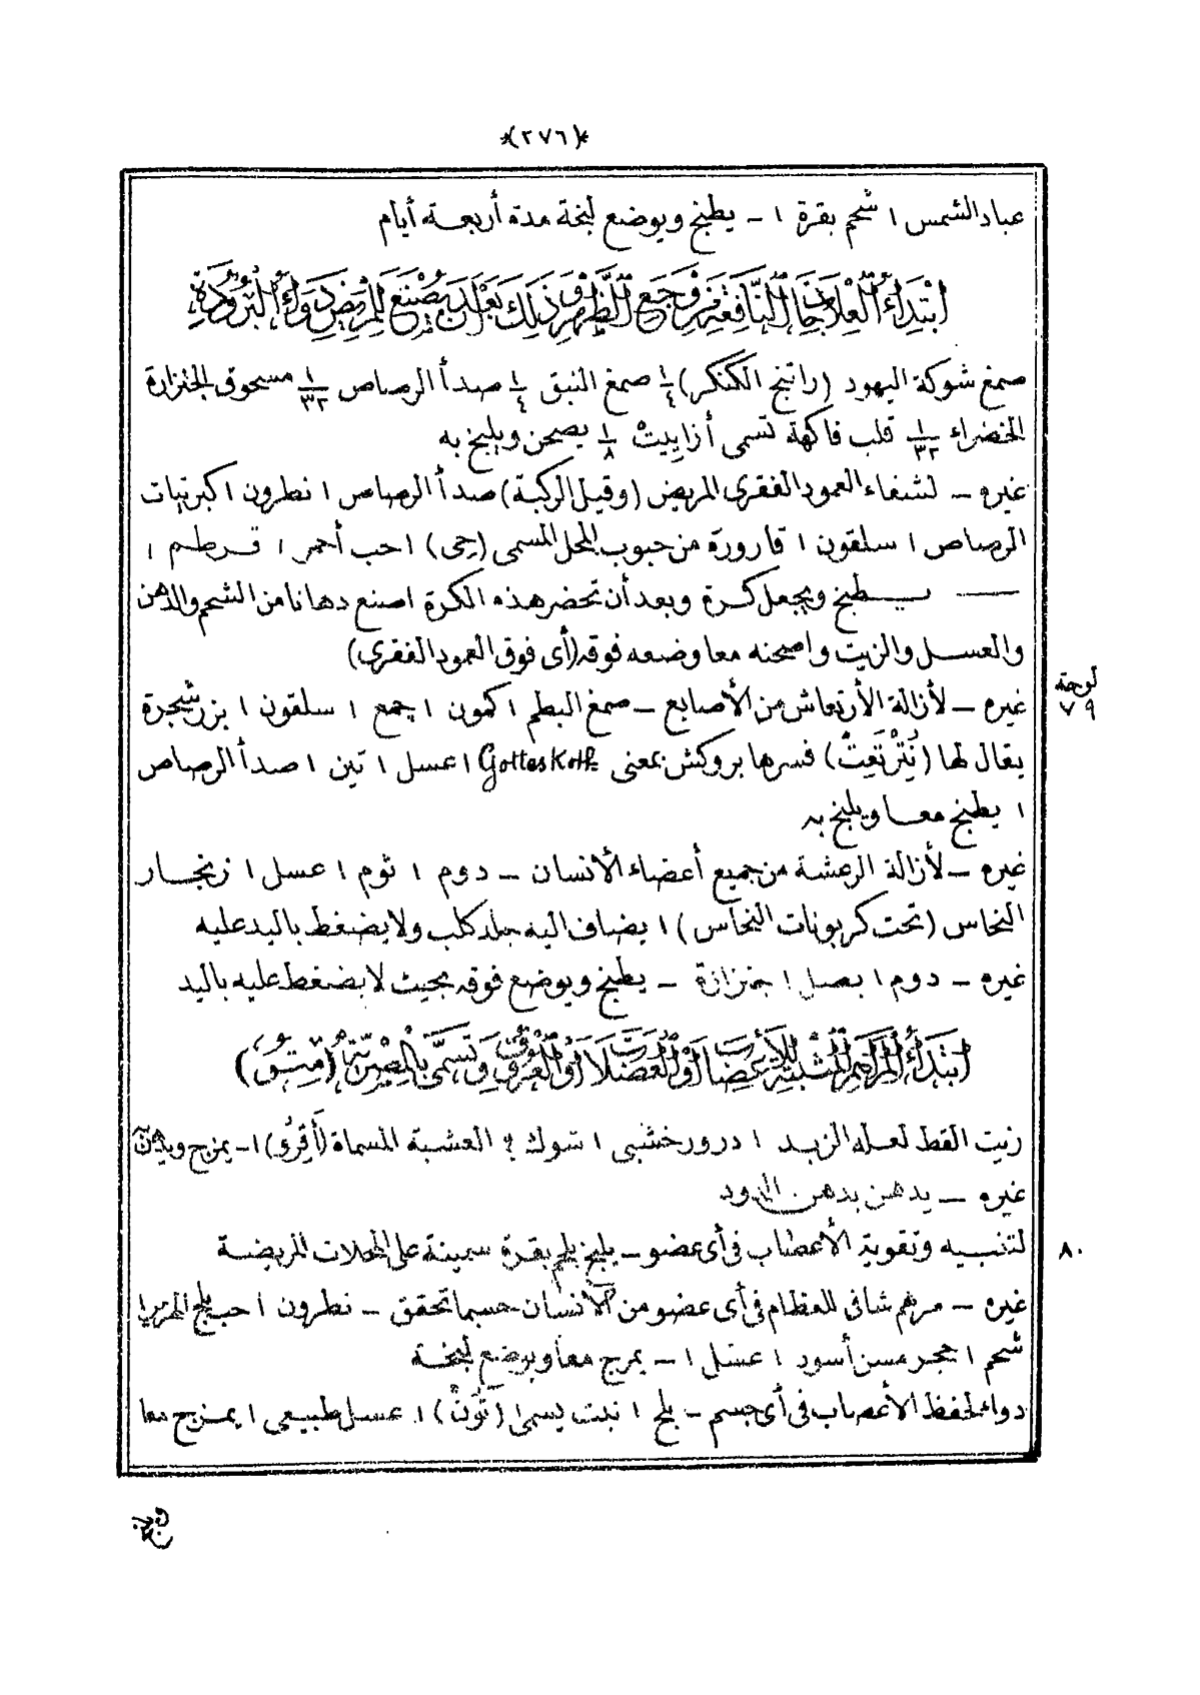 *(٢٧٦)*
عباد الشمس ١ شحم بقرة ١ - يطبخ ويوضع لبخة مدة أربعة أيام
ابتداء العلاجات النافعة في وجع الظهر ذلك بعد أن يصنع للمريض دواء البرودة
صمغ شوكة اليهود (راتنج الكنكر) ١/٤ صمغ النبق ١/٤ صدأ الرصاص ١/٣٢ مسحوق الجنزارة
الخضراء ١/٣٢ قلب فاكهة تسمى أزاييت ١/٨ يصحن ويلبخ به
غيره - لشفاء العمود الفقرى المريض (وقيل الركبة) صدأ الرصاص ١ نطرون ١ كبريتات
الرصاص ١ سلقون ١ قارورة من حبوب المحل المسمى (حمى) ١ حب أحمر ١ قرطم ١
— يطبخ ويجعل كرة وبعد أن تحضر هذه الكرة اصنع دهانا من الشحم والدهن
والعسل والزيت واصحنه معا وضعه فوقه (أى فوق العمود الفقرى)
لوحة ٧٩
غيره - لأزالة الأرتعاش من الأصابع - صمغ البطم ١ كمون ١ جمع ١ سلقون ١ بزر شجرة
يقال لها (نترتعت) فسرها بروكش بمعنى Gotteskoth ١ عسل ١ تين ١ صدأ الرصاص
١ يطبخ معا ويلبخ به
غيره - لأزالة الرعشة من جميع أعضاء الأنسان - دوم ١ ثوم ١ عسل ١ زنجار
النحاس (تحت كربونات النحاس) ١ يضاف اليه جلد كلب ولا يضغط باليد عليه
غيره - دوم ١ بصل ١ جنزارة - يطبخ ويوضع فوقه بحيث لا يضغط عليه باليد
ابتداء المراهم المنبهة للأعصاب أو العضلات أو العروق وتسمى بالمصرية (متو)
زيت القط لعله الزبد ١ درور خشبى ١ شوك ؟ العشبة المسماة (أقرو) ١ - يمزج ويدهن
غيره - يدهن بدهن الدود
٨٠
لتنبيه وتقوية الأعصاب فى أى عضو - يلبخ بلحم بقرة سمينة على المحلات المريضة
غيره - مرهم شافى للعظام فى أى عضو من الأنسان حسبما تحقق - نطرون ١ حب
شحم ١ حجر مسن أسود ١ عسل ١ - يمزج معا ويوضع لبخة
دواء لحفظ الأعصاب فى أى جسم - بلح ١ نبت يسمى (تون) ١ عسل طبيعى ١ يمزج معا